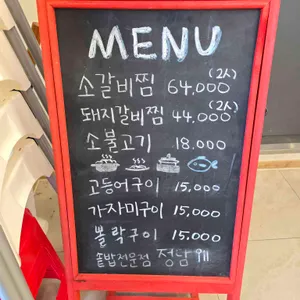 MENU
(2人)
소갈비찜 64,000
(2人)
돼지갈비찜 44,000
소불고기 18,000
고등어구이 15,000
가자미구이 15,000
볼락구이 15,000
솥밥전문점 정담